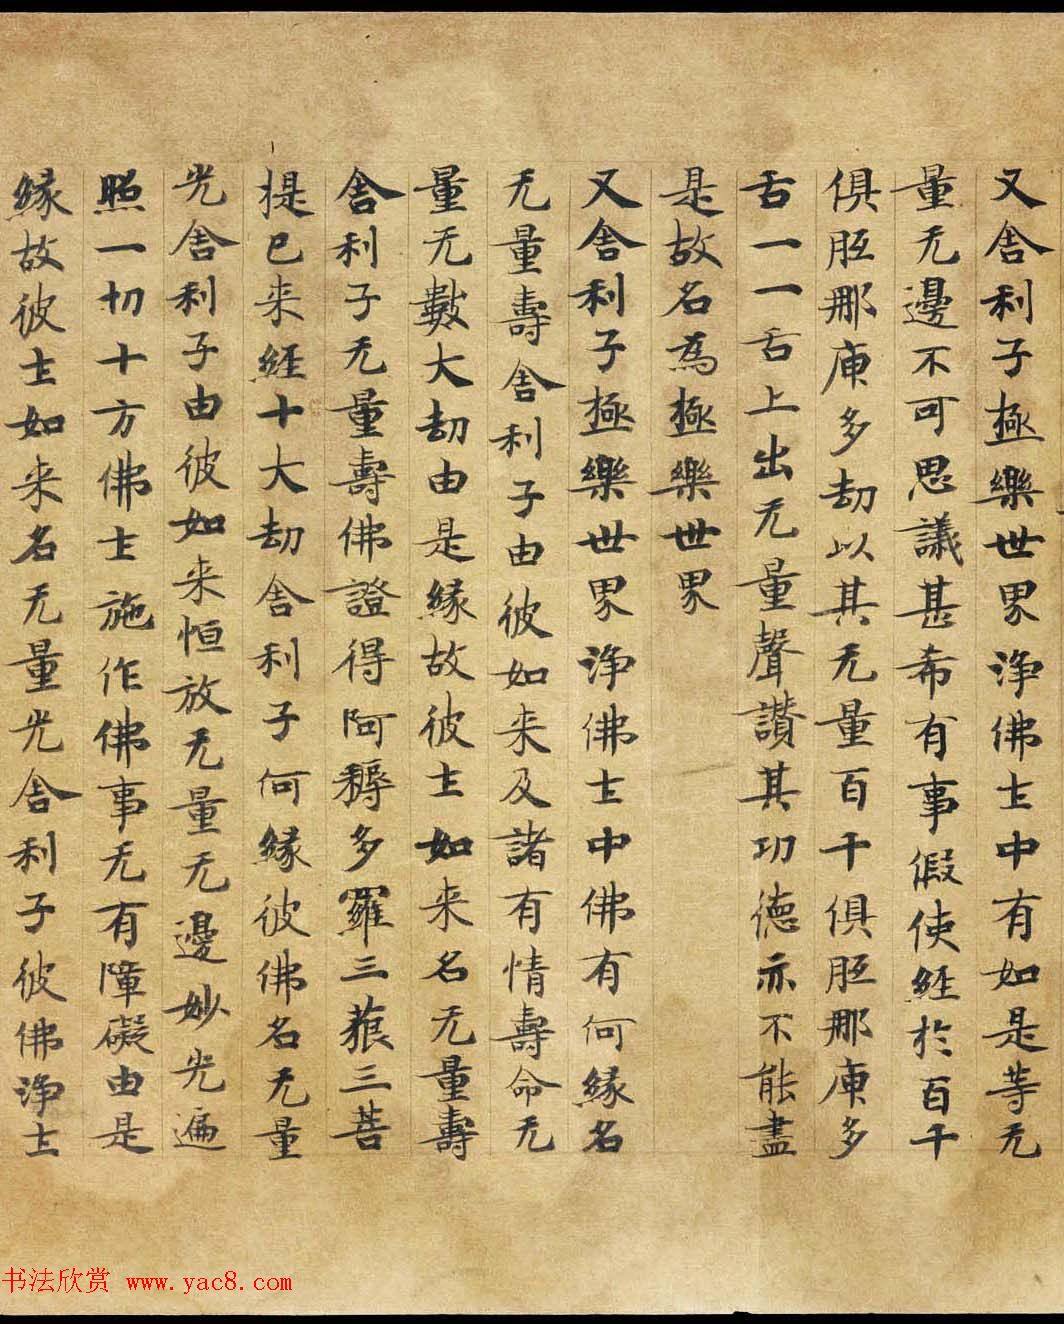 又舍利子極樂世界淨佛土中有如是等无
量无邊不可思議甚希有事假使經於百千
俱胝那庾多劫以其无量百千俱胝那庾多
舌一一舌上出无量聲讚其功德亦不能盡
是故名為極樂世界
又舍利子極樂世界淨佛土中佛有何緣名
无量壽舍利子由彼如来及諸有情壽命无
量无數大劫由是緣故彼土如来名无量壽
舍利子无量壽佛證得阿耨多羅三藐三菩
提已来經十大劫舍利子何緣彼佛名无量
光舍利子由彼如来恒放无量无邊妙光遍
照一切十方佛土施作佛事无有障礙由是
緣故彼土如来名无量光舍利子彼佛淨土
书法欣赏 www.yac8.com